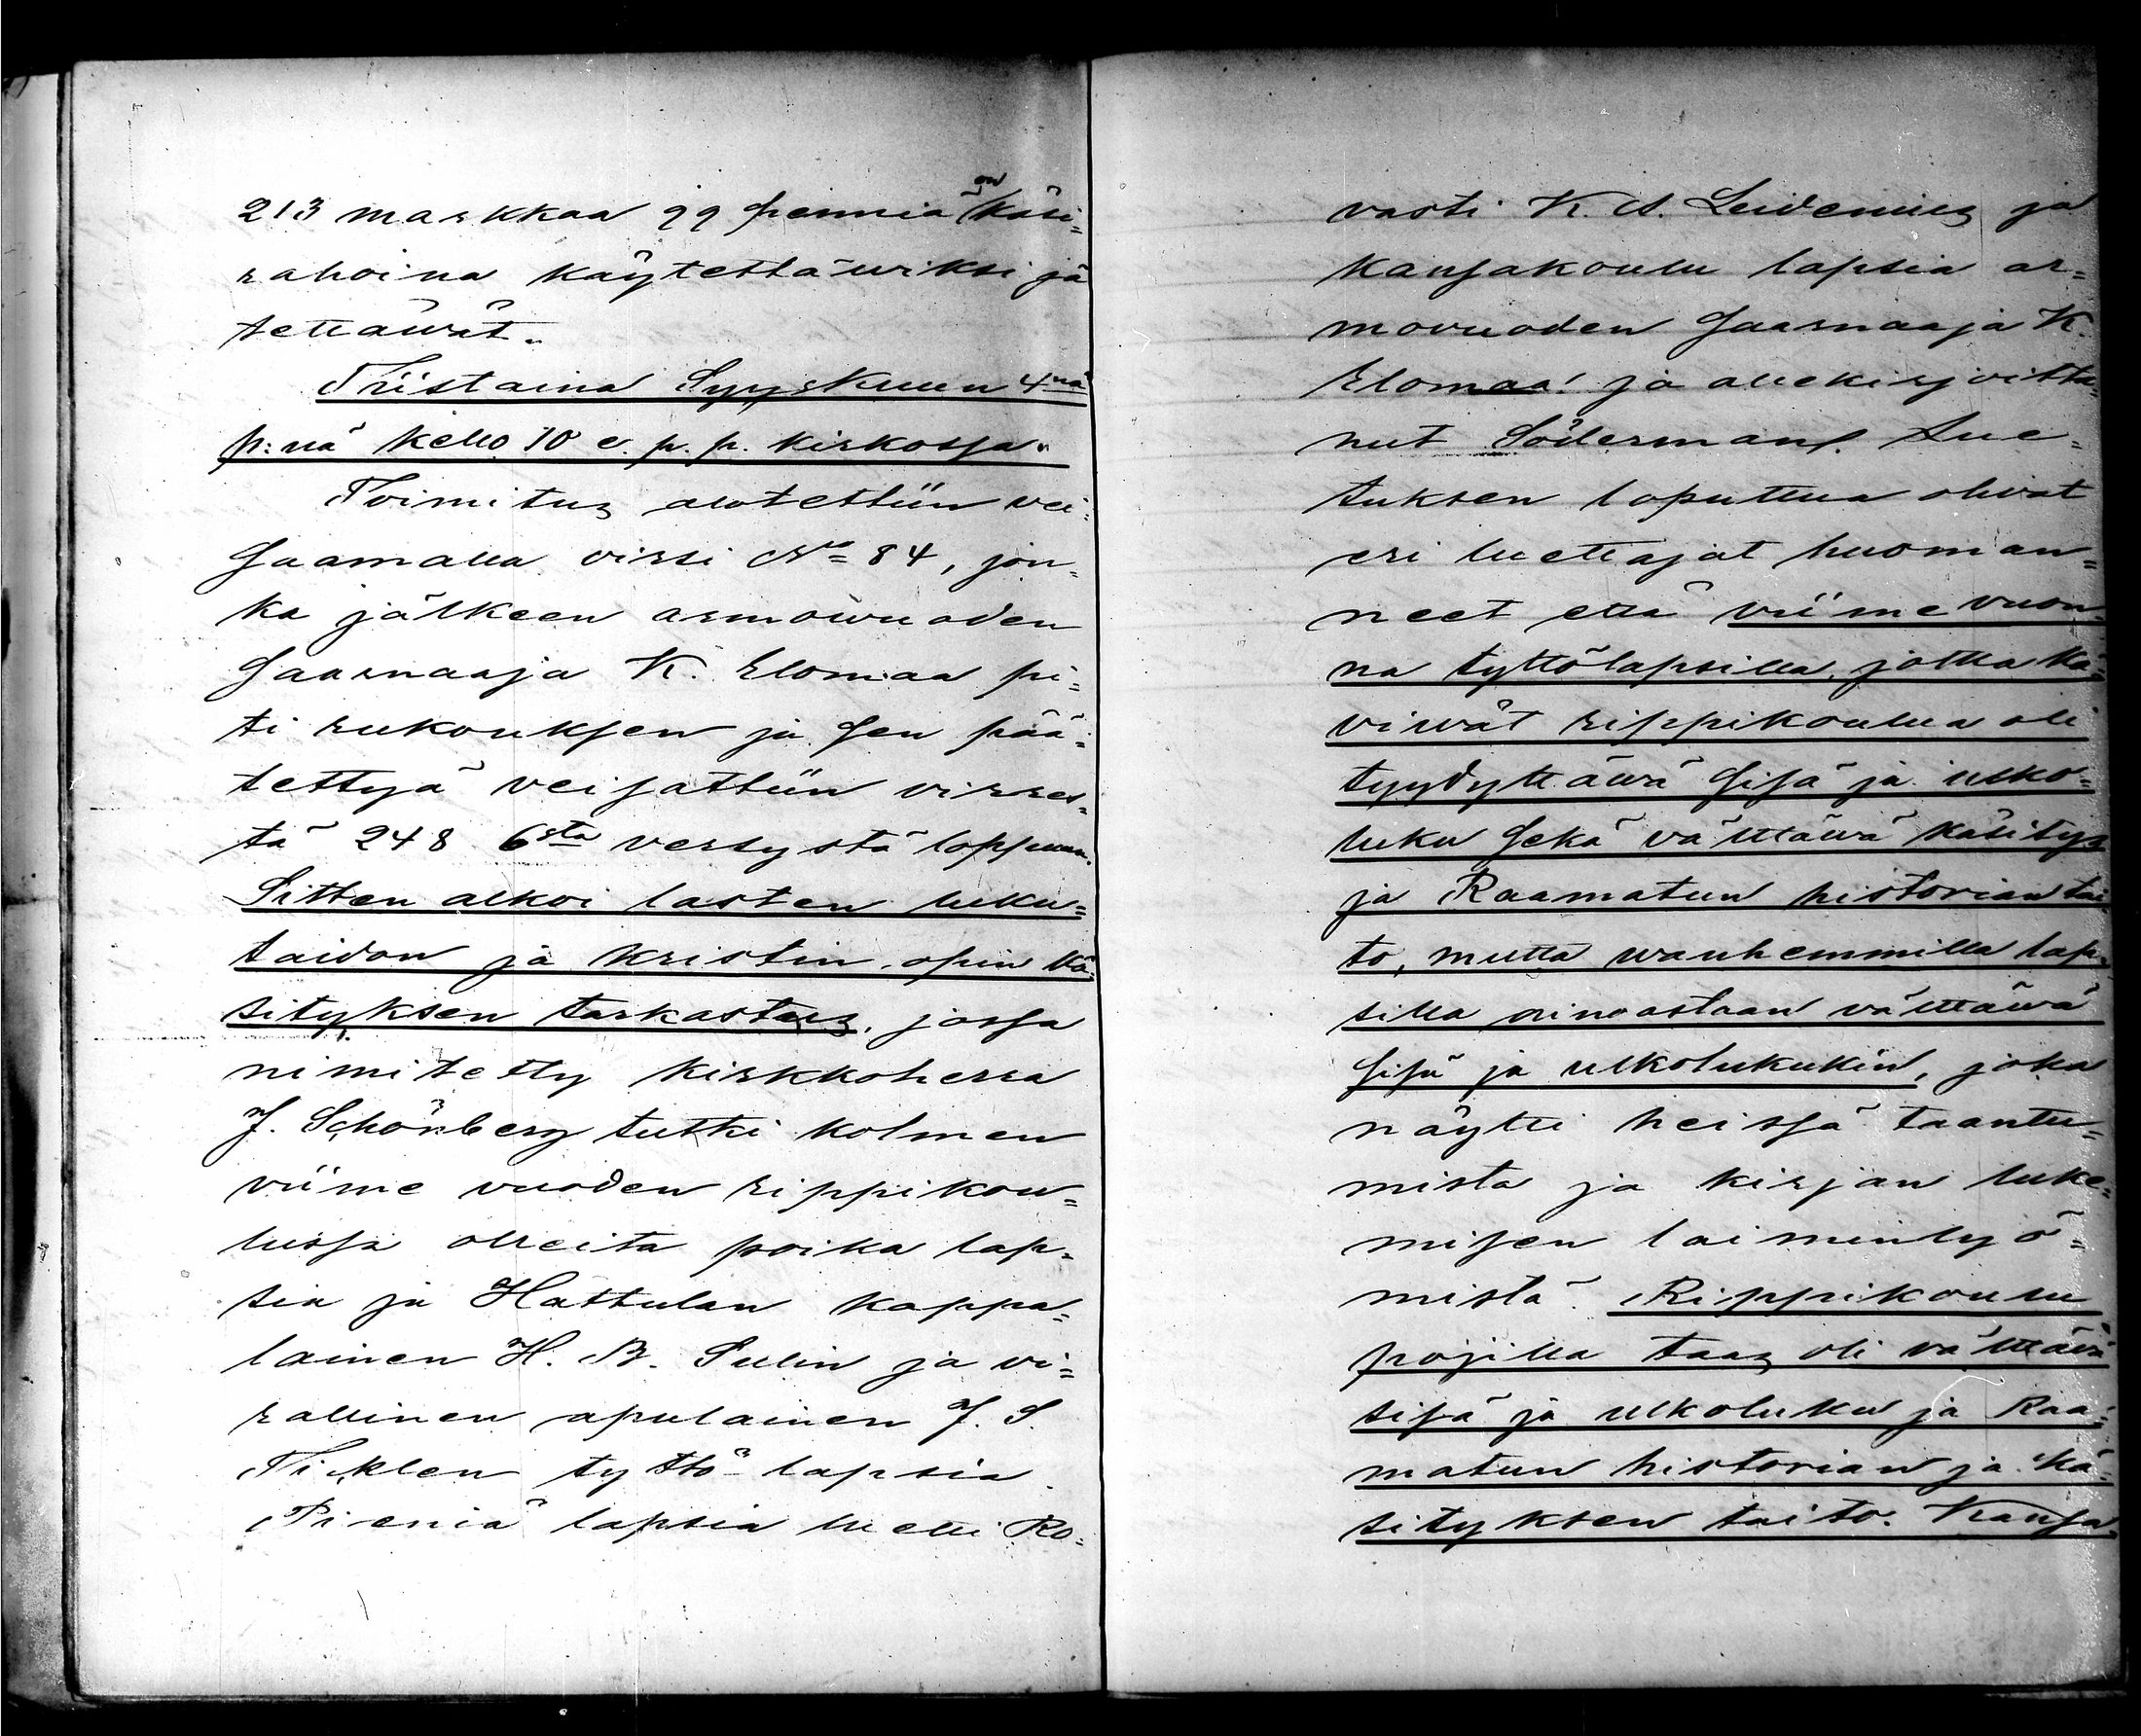 213 markkaa 99 penniä on käsi=
rahoina käytettäwiksi jä
tettäwät.
Tiistaina Syyskuun 4nä
p:nä kello 10 e. p. p. kirkossa.
Toimitus alotettiin vei=
saamalla virsi No 84, jon=
ka jälkeen armowuoden
saarnaaja K. Elomaa pi=
ti rukouksen ja sen pää=
tettyä veisattiin virres=
tä 248 6sta versystä loppuun.
Sitten alkoi lasten luku=
taidon ja kristin opin kä=
sityksen tarkastus, jossa
nimitetty kirkkoherra
J. Schönberg tutki kolmen
viime vuoden rippikou=
lussa olleita poika lap=
sia ja Hattulan kappa=
lainen H. B. Sulin ja vi=
rallinen apulainen J. S.
Ticklen tyttö-lapsia.
Pieniä lapsia luetti Ro=
vasti K. A. Leidenius ja
kansakoulu lapsia ar=
movuoden saarnaaja K.
Elomaa ja allekirjoitta=
nut Söderman. Lue=
tuksen loputtua olivat
eri luettajat huoman=
neet että viime vuon=
na tyttölapsilla, jotka kä=
viwät rippikoulua oli
tyydyttäwä sisä ja ulko=
luku sekä välttäwä käsitys
ja Raamatun historian tai=
to, mutta wanhemmilla lap=
silla ainoastaan välttäwä
sisä ja ulkolukukin, joka
näytti heissä taantu=
mista ja kirjan luke=
misen laiminlyö=
mistä. Rippikoulu
pojilla taas oli välttäwä
sisä ja ulkoluku ja Raa=
matun historian ja kä=
sityksen taito. Kansa=